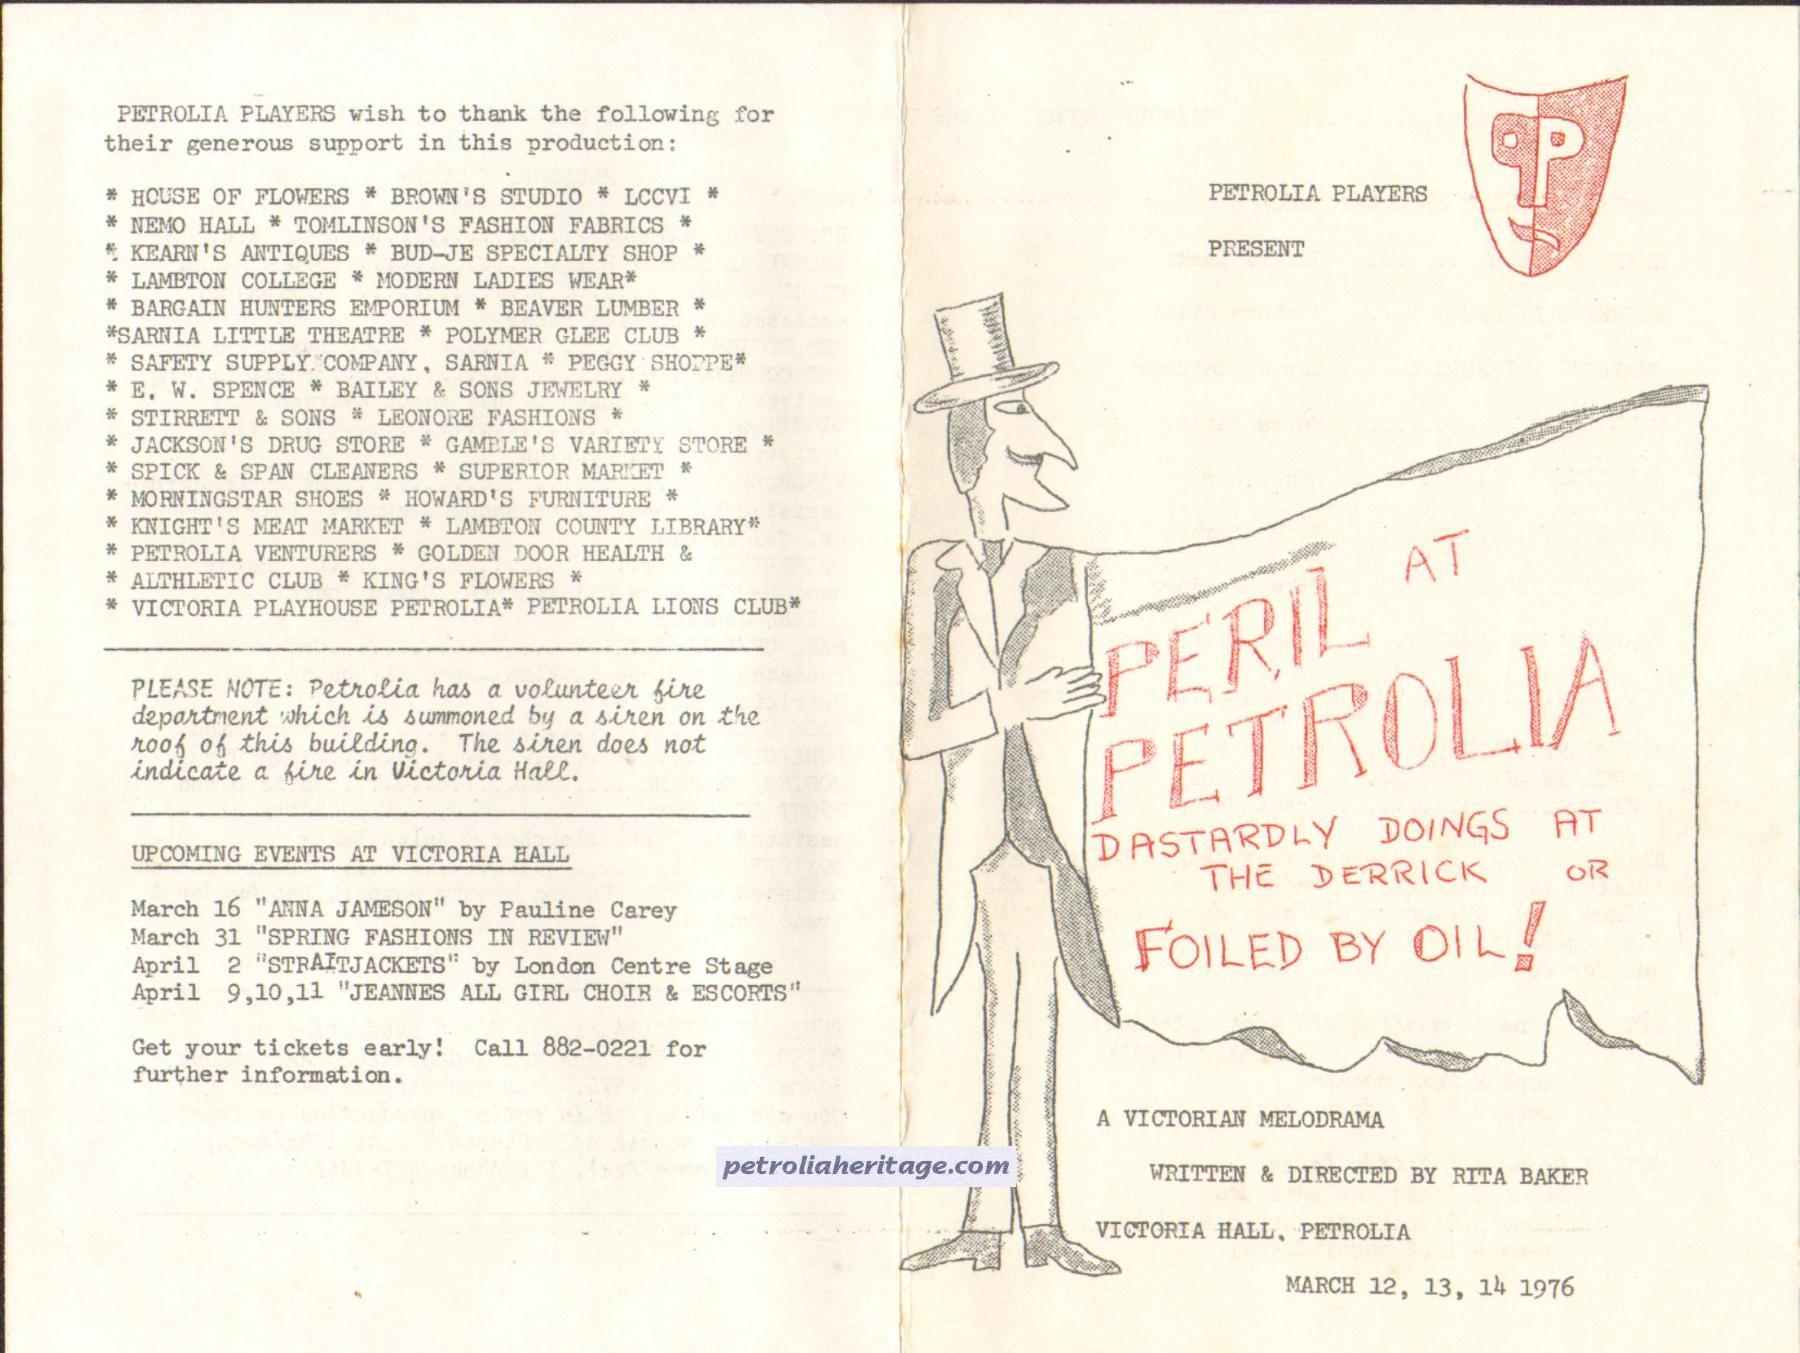 PETROLIA PLAYERS wish to thank the following for
their generous support in this production:
* HOUSE OF FLOWERS * BROWN'S STUDIO * LCCVI *
* NEMO HALL * TOMLINSON'S FASHION FABRICS *
* KEARN'S ANTIQUES * BUD-JE SPECIALTY SHOP *
* LAMBTON COLLEGE * MODERN LADIES WEAR*
* BARGAIN HUNTERS EMPORIUM * BEAVER LUMBER *
*SARNIA LITTLE THEATRE * POLYMER GLEE CLUB *
* SAFETY SUPPLY COMPANY, SARNIA * PEGGY SHOPPE*
* E. W. SPENCE * BAILEY & SONS JEWELRY *
* STIRRETT & SONS * LEONORE FASHIONS *
* JACKSON'S DRUG STORE * GAMBLE'S VARIETY STORE *
* SPICK & SPAN CLEANERS * SUPERIOR MARKET *
* MORNINGSTAR SHOES * HOWARD'S FURNITURE *
* KNIGHT'S MEAT MARKET * LAMBTON COUNTY LIBRARY*
* PETROLIA VENTURERS * GOLDEN DOOR HEALTH &
* ALTHLETIC CLUB * KING'S FLOWERS *
* VICTORIA PLAYHOUSE PETROLIA* PETROLIA LIONS CLUB*
PLEASE NOTE: Petrolia has a volunteer fire
department which is summoned by a siren on the
roof of this building. The siren does not
indicate a fire in Victoria Hall.
UPCOMING EVENTS AT VICTORIA HALL
March 16 "ANNA JAMESON" by Pauline Carey
March 31 "SPRING FASHIONS IN REVIEW"
April 2 "STRAITJACKETS" by London Centre Stage
April 9,10,11 "JEANNES ALL GIRL CHOIR & ESCORTS"
Get your tickets early! Call 882-0221 for
further information.
petroliaheritage.com
PETROLIA PLAYERS
PRESENT
PP
PERIL AT
PETROLIA
DASTARDLY DOINGS AT
THE DERRICK OR
FOILED BY OIL!
A VICTORIAN MELODRAMA
WRITTEN & DIRECTED BY RITA BAKER
VICTORIA HALL, PETROLIA
MARCH 12, 13, 14 1976